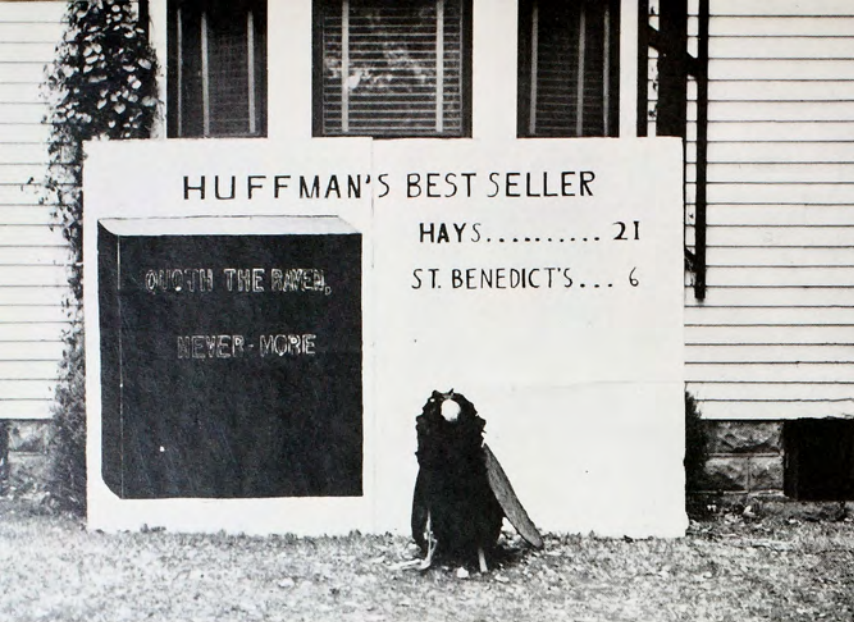 HUFFMAN'S BEST SELLER
HAYS.......... 21
ST. BENEDICT'S... 6
QUOTH THE RAVEN,
NEVER-MORE